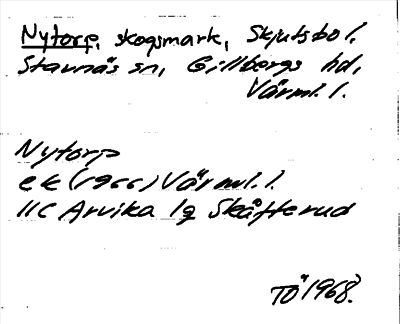 Nytorp, skogsmark, Skjutsbol,
Stavnäs sn, Gillbergs hd,
Värml. l.
Nytorp
ek (1966) Värml. l.
11C Arvika 1g Skåfterud
TÖ 1968.